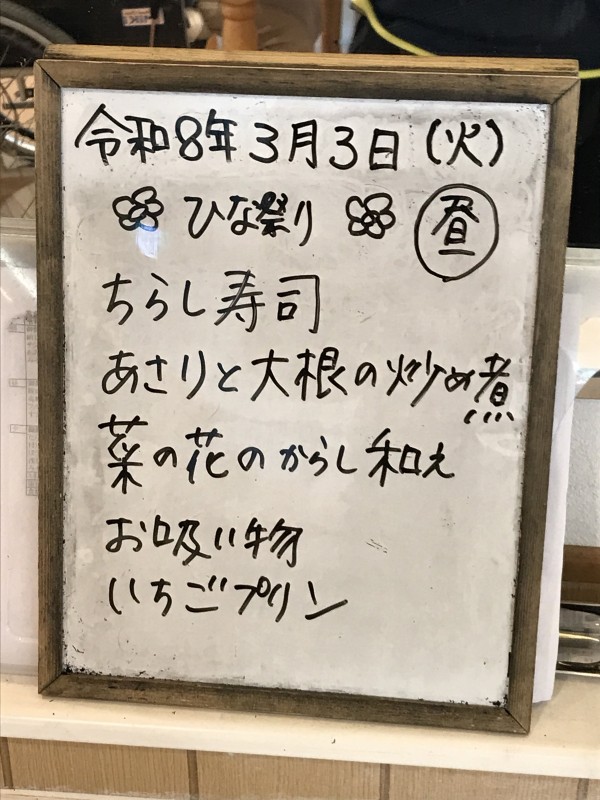 令和8年3月3日(火)
ひな祭り 昼
ちらし寿司
あさりと大根の炒め煮
菜の花のからし和え
お吸い物
いちごプリン